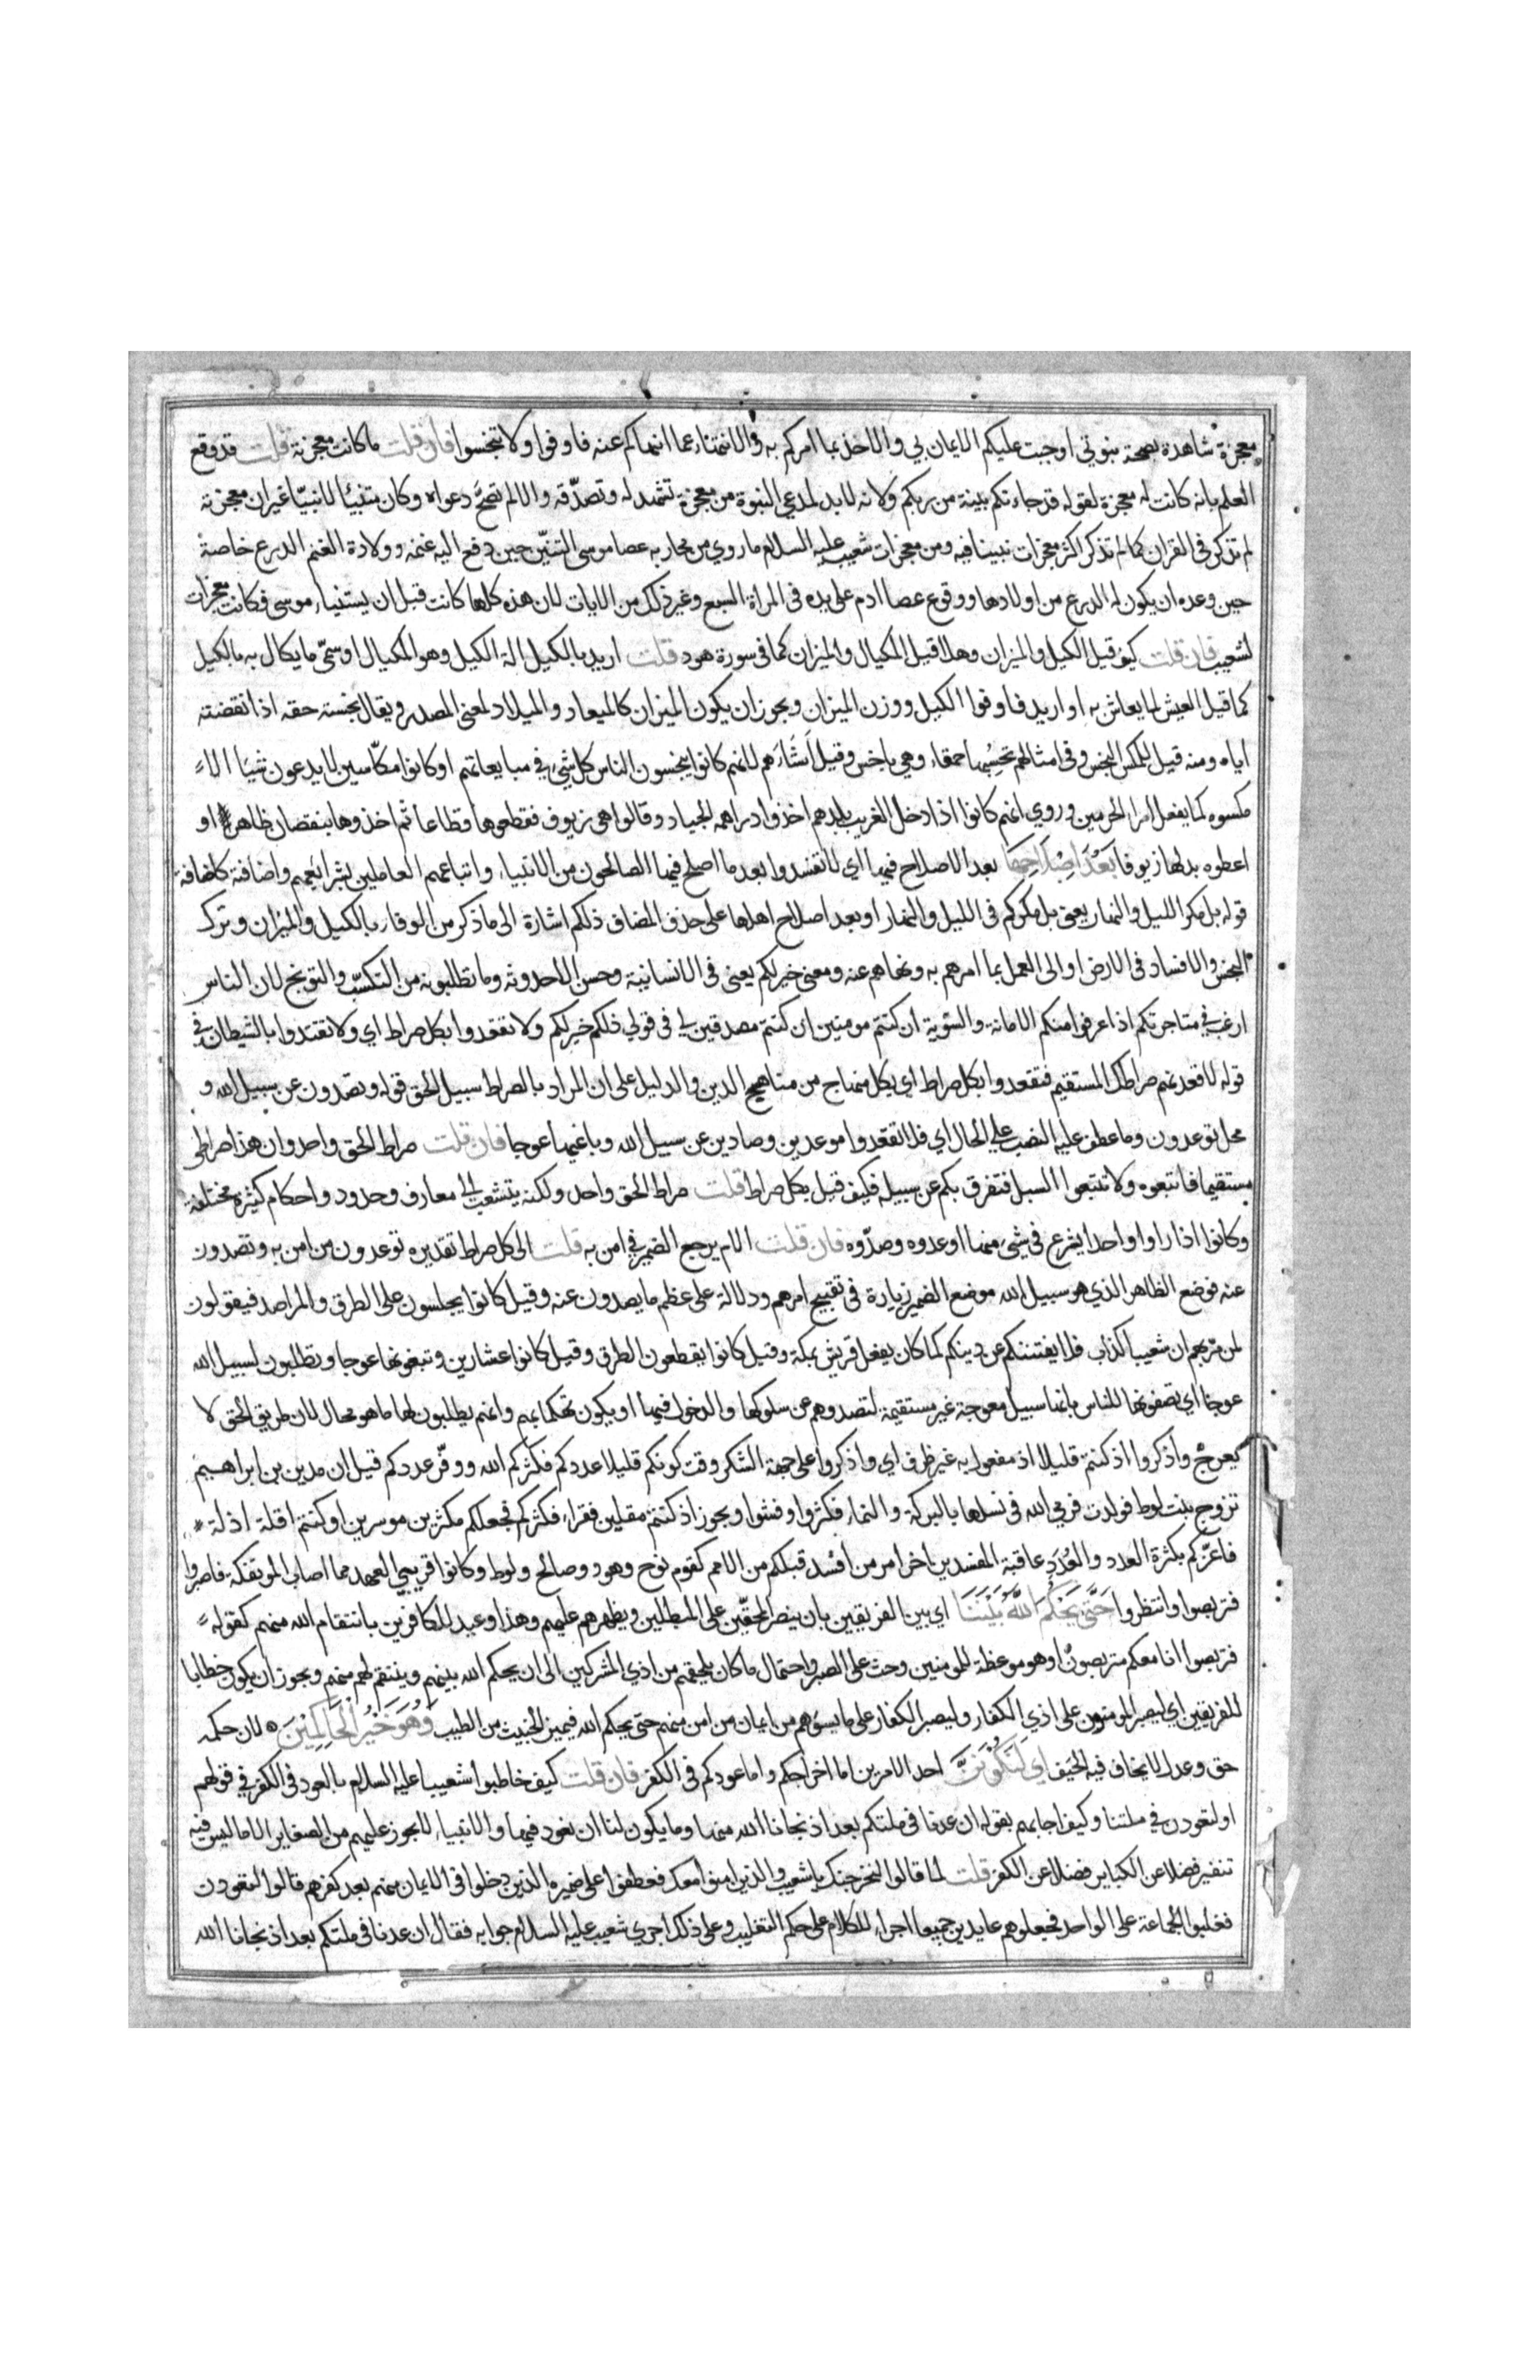 معجزة شاهدة بصحة نبوتي اوجبت عليكم الايمان بي والاخذ بما امركم به والانتهاء عما انهاكم عنه فاوفوا ولا تبخسوا فان قلت ما كانت معجزته قلت قد وقع
العلم بانه كانت له معجزة لقوله قد جاءتكم بينة من ربكم ولانه لابد لمدعي النبوة من معجزة تشهد له وتصدّقه والا لم تصحّ دعواه وكان متنبئا لا نبيّا غير ان معجزته
لم تذكر في القران كما لم تذكر اكثر معجزات نبينا فيه ومن معجزات شعيب عليه السلام ما روي من محاربه عصا موسى التنّين حين دفع اليه غنمه وولادة الغنم الدرع خاصة
حين وعده ان يكون له الدرع من اولادها ووقوع عصا ادم على يده في المراة السبع وغير ذلك من الايات لان هذه كلها كانت قبل ان يستنباء موسى فكانت معجزات
لشعيب فان قلت كيف قيل الكيل والميزان وهلا قيل المكيال والميزان كما في سورة هود قلت اريد بالكيل الة الكيل وهو المكيال او سمّى ما يكال به بالكيل
كما قيل العيش لما يعاش به او اريد فاوفوا الكيل ووزن الميزان ويجوز ان يكون الميزان كالميعاد والميلاد لمعنى المصدر ويقال بخسته حقه اذا نقصته
اياه ومنه قيل للمكس البخس وفي امثالهم تحسبها حمقاء وهي باخس وقيل اشياءهم لانهم كانوا يبخسون الناس كل شيء في مبايعاتهم او كانوا مكّاسين لا يدعون شيئا الا
مكسوه كما يفعل امراء الحرمين وروي انهم كانوا اذا دخل الغريب بلدهم اخذوا دراهمه الجياد وقالوا هي زيوف فقطعوها قطاعا ثم اخذوها بنقصان ظاهر او
اعطوه بدلها زيوفا بَعْدَ اِصْلَاحِهَا بعد الاصلاح فيها اي لا تفسدوا بعد ما اصلح فيها الصالحون من الانبياء واتباعهم العاملين بشرائعهم واضافته كاضافة
قوله بل مكر الليل والنهار يعني بل مكركم في الليل والنهار او بعد اصلاح اهلها على حذف المضاف ذلكم اشارة الى ما ذكر من الوفاء بالكيل والميزان وترك
البخس والافساد في الارض او الى العمل بما امرهم به ونهاهم عنه ومعنى خير لكم يعني في الانسانية وحسن الاحدوثه وما تطلبونه من التكسّب والتوبخ لان الناس
ارغب في متاجرتكم اذا عرفوا منكم الامانة والسوية ان كنتم مومنين ان كنتم مصدقين لي في قولي ذلكم خير لكم ولا تقعدوا بكل صراط اي ولا تقتدوا بالشيطان في
قوله لاقعدنهم صراطك المستقيم فتقعدوا بكل صراط اي بكل منهاج من مناهج الدين والدليل على ان المراد بالصراط سبيل الحق قوله وتصدون عن سبيل الله و
محل توعدون وما عطف عليه النصب على الحال اي فلا تقعدوا موعدين وصادين عن سبيل الله وباغيها عوجا فان قلت صراط الحق واحد وان هذا صراطي
مستقيما فاتبعوه ولا تتبعوا السبل فتفرق بكم عن سبيله فكيف قيل بكل صراط قلت صراط الحق واحد ولكنه يتشعب الى معارف وحدود واحكام كثيرة مختلفة
وكانوا اذا راوا واحدا يشرع في شيء منها اوعدوه وصدّوه فان قلت الام يرجع الضمير في امن به قلت الى كل صراط تقديره توعدون من امن به وتصدون
عنه فوضع الظاهر الذي هو سبيل الله موضع الضمير زيادة في تقبيح امرهم ودلالة على عظم ما يصدون عنه وقيل كانوا يجلسون على الطرق والمراصد فيقولون
لمن مرّ بهم ان شعيبا كذاب فلا يفتننكم عن دينكم كما كان يفعل قريش بمكة وقيل كانوا يقطعون الطرق وقيل كانوا عشارين وتبغونها عوجا وتطلبون لسبيل الله
عوجا اي تصفونها للناس بانها سبيل معوجة غير مستقيمة لتصدوهم عن سلوكها والدخول فيها او يكون تهكما بهم وانهم يطلبون لها ما هو محال لان طريق الحق لا
يعوجّ واذكروا اذ كنتم قليلا اذ مفعول به غير ظرف اي واذكروا على جهة الشكر وقت كونكم قليلا عددكم فكثركم الله ووفّر عددكم قيل ان مدين بن ابراهيم
تزوج بنت لوط فولدت فرمي الله في نسلها بالبركة والنماء فكثروا وفشوا ويجوز اذ كنتم مقلين فقراء فكثركم فجعلكم مكثرين موسرين او كنتم اقلة اذلة
فاعزّكم بكثرة العدد والعُدَد عاقبة المفسدين اخر امر من افسد قبلكم من الامم كقوم نوح وهود وصالح ولوط وكانوا قريبي العهد مما اصاب الموتفكة فاصبروا
فتربصوا وانتظروا حَتَّى يَحْكُمَ اللَّهُ بَيْنَنَا اي بين الفريقين بان ينصر المحقّين على المبطلين ويظهرهم عليهم وهذا وعيد للكافرين بانتقام الله منهم كقوله
فتربصوا انا معكم متربصون او هو موعظة للمومنين وحث على الصبر واحتمال ما كان يلحقهم من اذي المشركين الى ان يحكم الله بينهم وينتقم لهم منهم ويجوز ان يكون خطابا
للفريقين اي ليصبر المومنون على اذي الكفار وليصبر الكفار على ما يسوءهم من ايمان من امن منهم حتى يحكم الله فيميز الخبيث من الطيب وَهُوَ خَيْرُ الْحَاكِمِيْنَ لان حكمه
حق وعدل لا يخاف فيه الحيف اي لَتَكُوْنَنَّ احد الامرين اما اخراجكم واما عودكم في الكفر فان قلت كيف خاطبوا شعيبا عليه السلام بالعود في الكفر في قولهم
او لتعودن في ملتنا وكيف اجابهم بقوله ان عدنا في ملتكم بعد اذ نجانا الله منها وما يكون لنا ان نعود فيها والانبياء لا يجوز عليهم من الصغاير الا ما ليس فيه
تنفير فضلا عن الكباير فضلا عن الكفر قلت لما قالوا لنخرجنك يا شعيب والذين امنوا معك فعطفوا على ضميره الذين دخلوا في الايمان منهم بعد كفرهم قالوا لتعودن
فغلبوا الجماعة على الواحد فجعلوهم عايدين جميعا اجراء للكلام على حكم التغليب وعلى ذلك اجري شعيب عليه السلام جوابه فقال ان عدنا في ملتكم بعد اذ نجانا الله